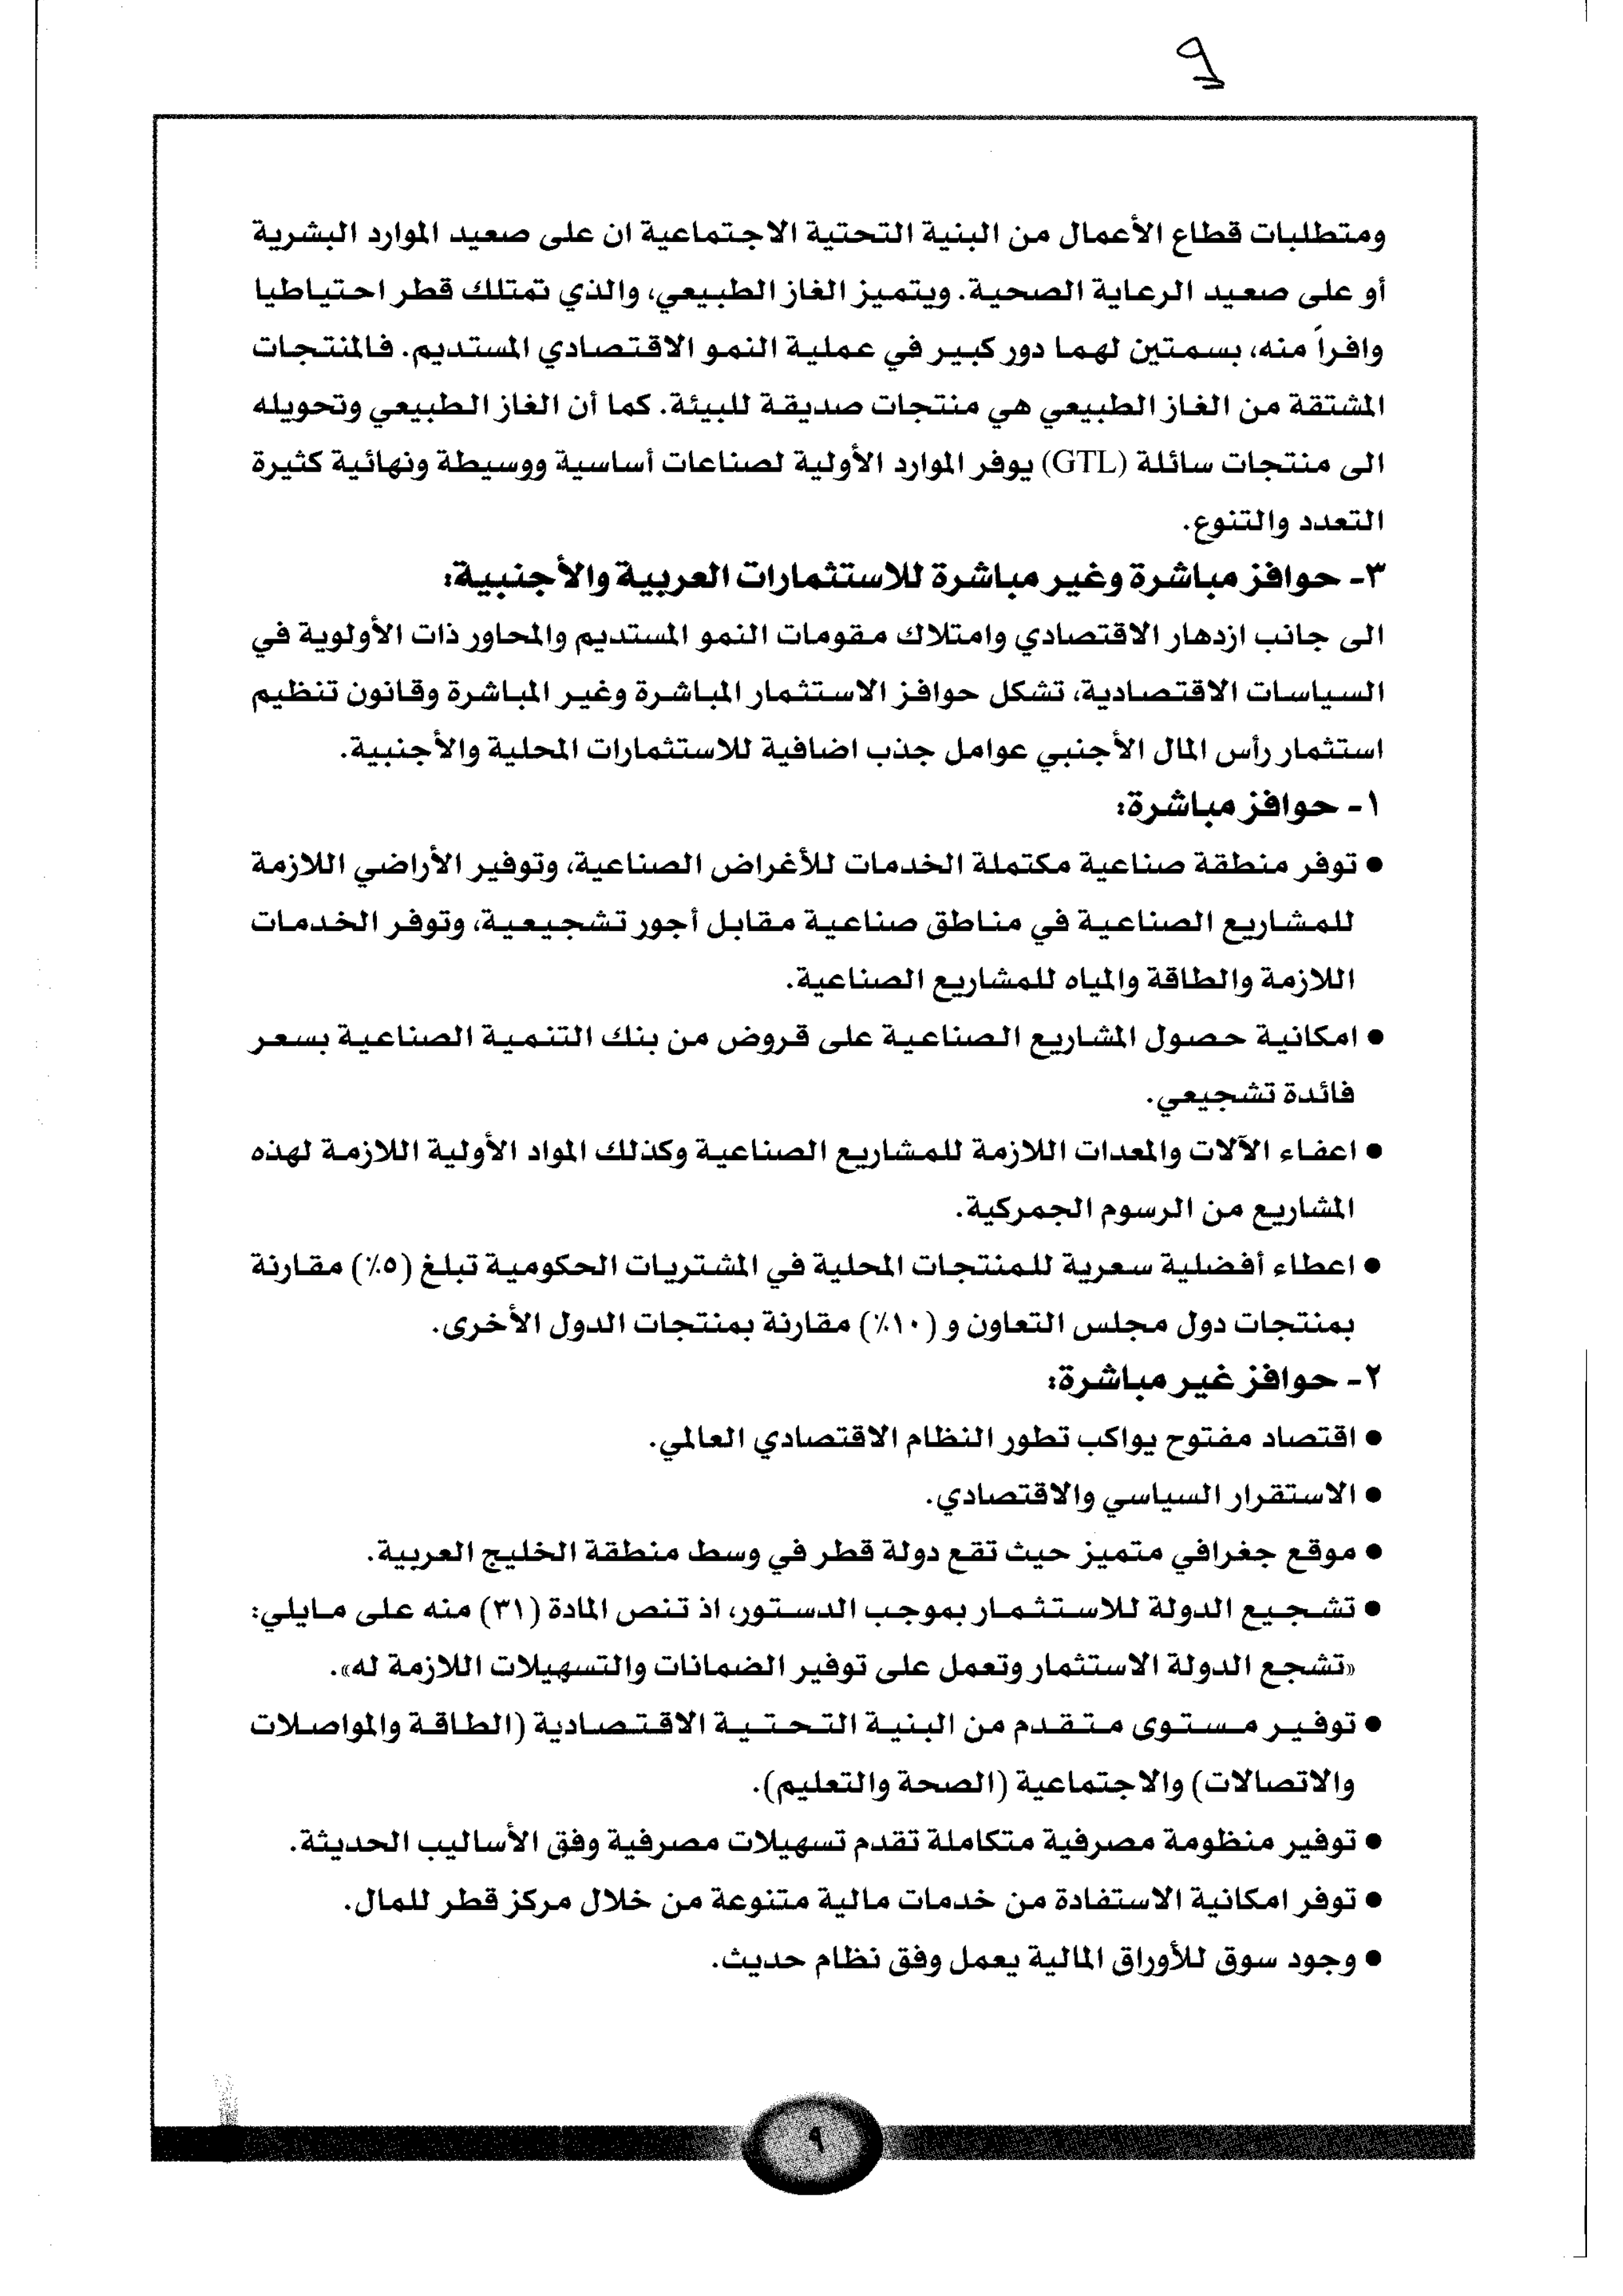 ٩
ومتطلبات قطاع الأعمال من البنية التحتية الاجتماعية ان على صعيد الموارد البشرية
أو على صعيد الرعاية الصحية. ويتميز الغاز الطبيعي، والذي تمتلك قطر احتياطيا
وافراً منه، بسمتين لهما دور كبير في عملية النمو الاقتصادي المستديم. فالمنتجات
المشتقة من الغاز الطبيعي هي منتجات صديقة للبيئة. كما أن الغاز الطبيعي وتحويله
الى منتجات سائلة (GTL) يوفر الموارد الأولية لصناعات أساسية ووسيطة ونهائية كثيرة
التعدد والتنوع.
٣- حوافز مباشرة وغير مباشرة للاستثمارات العربية والأجنبية:
الى جانب ازدهار الاقتصادي وامتلاك مقومات النمو المستديم والمحاور ذات الأولوية في
السياسات الاقتصادية، تشكل حوافز الاستثمار المباشرة وغير المباشرة وقانون تنظيم
استثمار رأس المال الأجنبي عوامل جذب اضافية للاستثمارات المحلية والأجنبية.
١- حوافز مباشرة:
● توفر منطقة صناعية مكتملة الخدمات للأغراض الصناعية، وتوفير الأراضي اللازمة
للمشاريع الصناعية في مناطق صناعية مقابل أجور تشجيعية، وتوفر الخدمات
اللازمة والطاقة والمياه للمشاريع الصناعية.
● امكانية حصول المشاريع الصناعية على قروض من بنك التنمية الصناعية بسعر
فائدة تشجيعي.
● اعفاء الآلات والمعدات اللازمة للمشاريع الصناعية وكذلك المواد الأولية اللازمة لهذه
المشاريع من الرسوم الجمركية.
● اعطاء أفضلية سعرية للمنتجات المحلية في المشتريات الحكومية تبلغ (٥٪) مقارنة
بمنتجات دول مجلس التعاون و (١٠٪) مقارنة بمنتجات الدول الأخرى.
٢- حوافز غير مباشرة:
● اقتصاد مفتوح يواكب تطور النظام الاقتصادي العالمي.
● الاستقرار السياسي والاقتصادي.
● موقع جغرافي متميز حيث تقع دولة قطر في وسط منطقة الخليج العربية.
● تشجيع الدولة للاستثمار بموجب الدستور، اذ تنص المادة (٣١) منه على مايلي:
«تشجع الدولة الاستثمار وتعمل على توفير الضمانات والتسهيلات اللازمة له».
● توفير مستوى متقدم من البنية التحتية الاقتصادية (الطاقة والمواصلات
والاتصالات) والاجتماعية (الصحة والتعليم).
● توفير منظومة مصرفية متكاملة تقدم تسهيلات مصرفية وفق الأساليب الحديثة.
● توفر امكانية الاستفادة من خدمات مالية متنوعة من خلال مركز قطر للمال.
● وجود سوق للأوراق المالية يعمل وفق نظام حديث.
٩